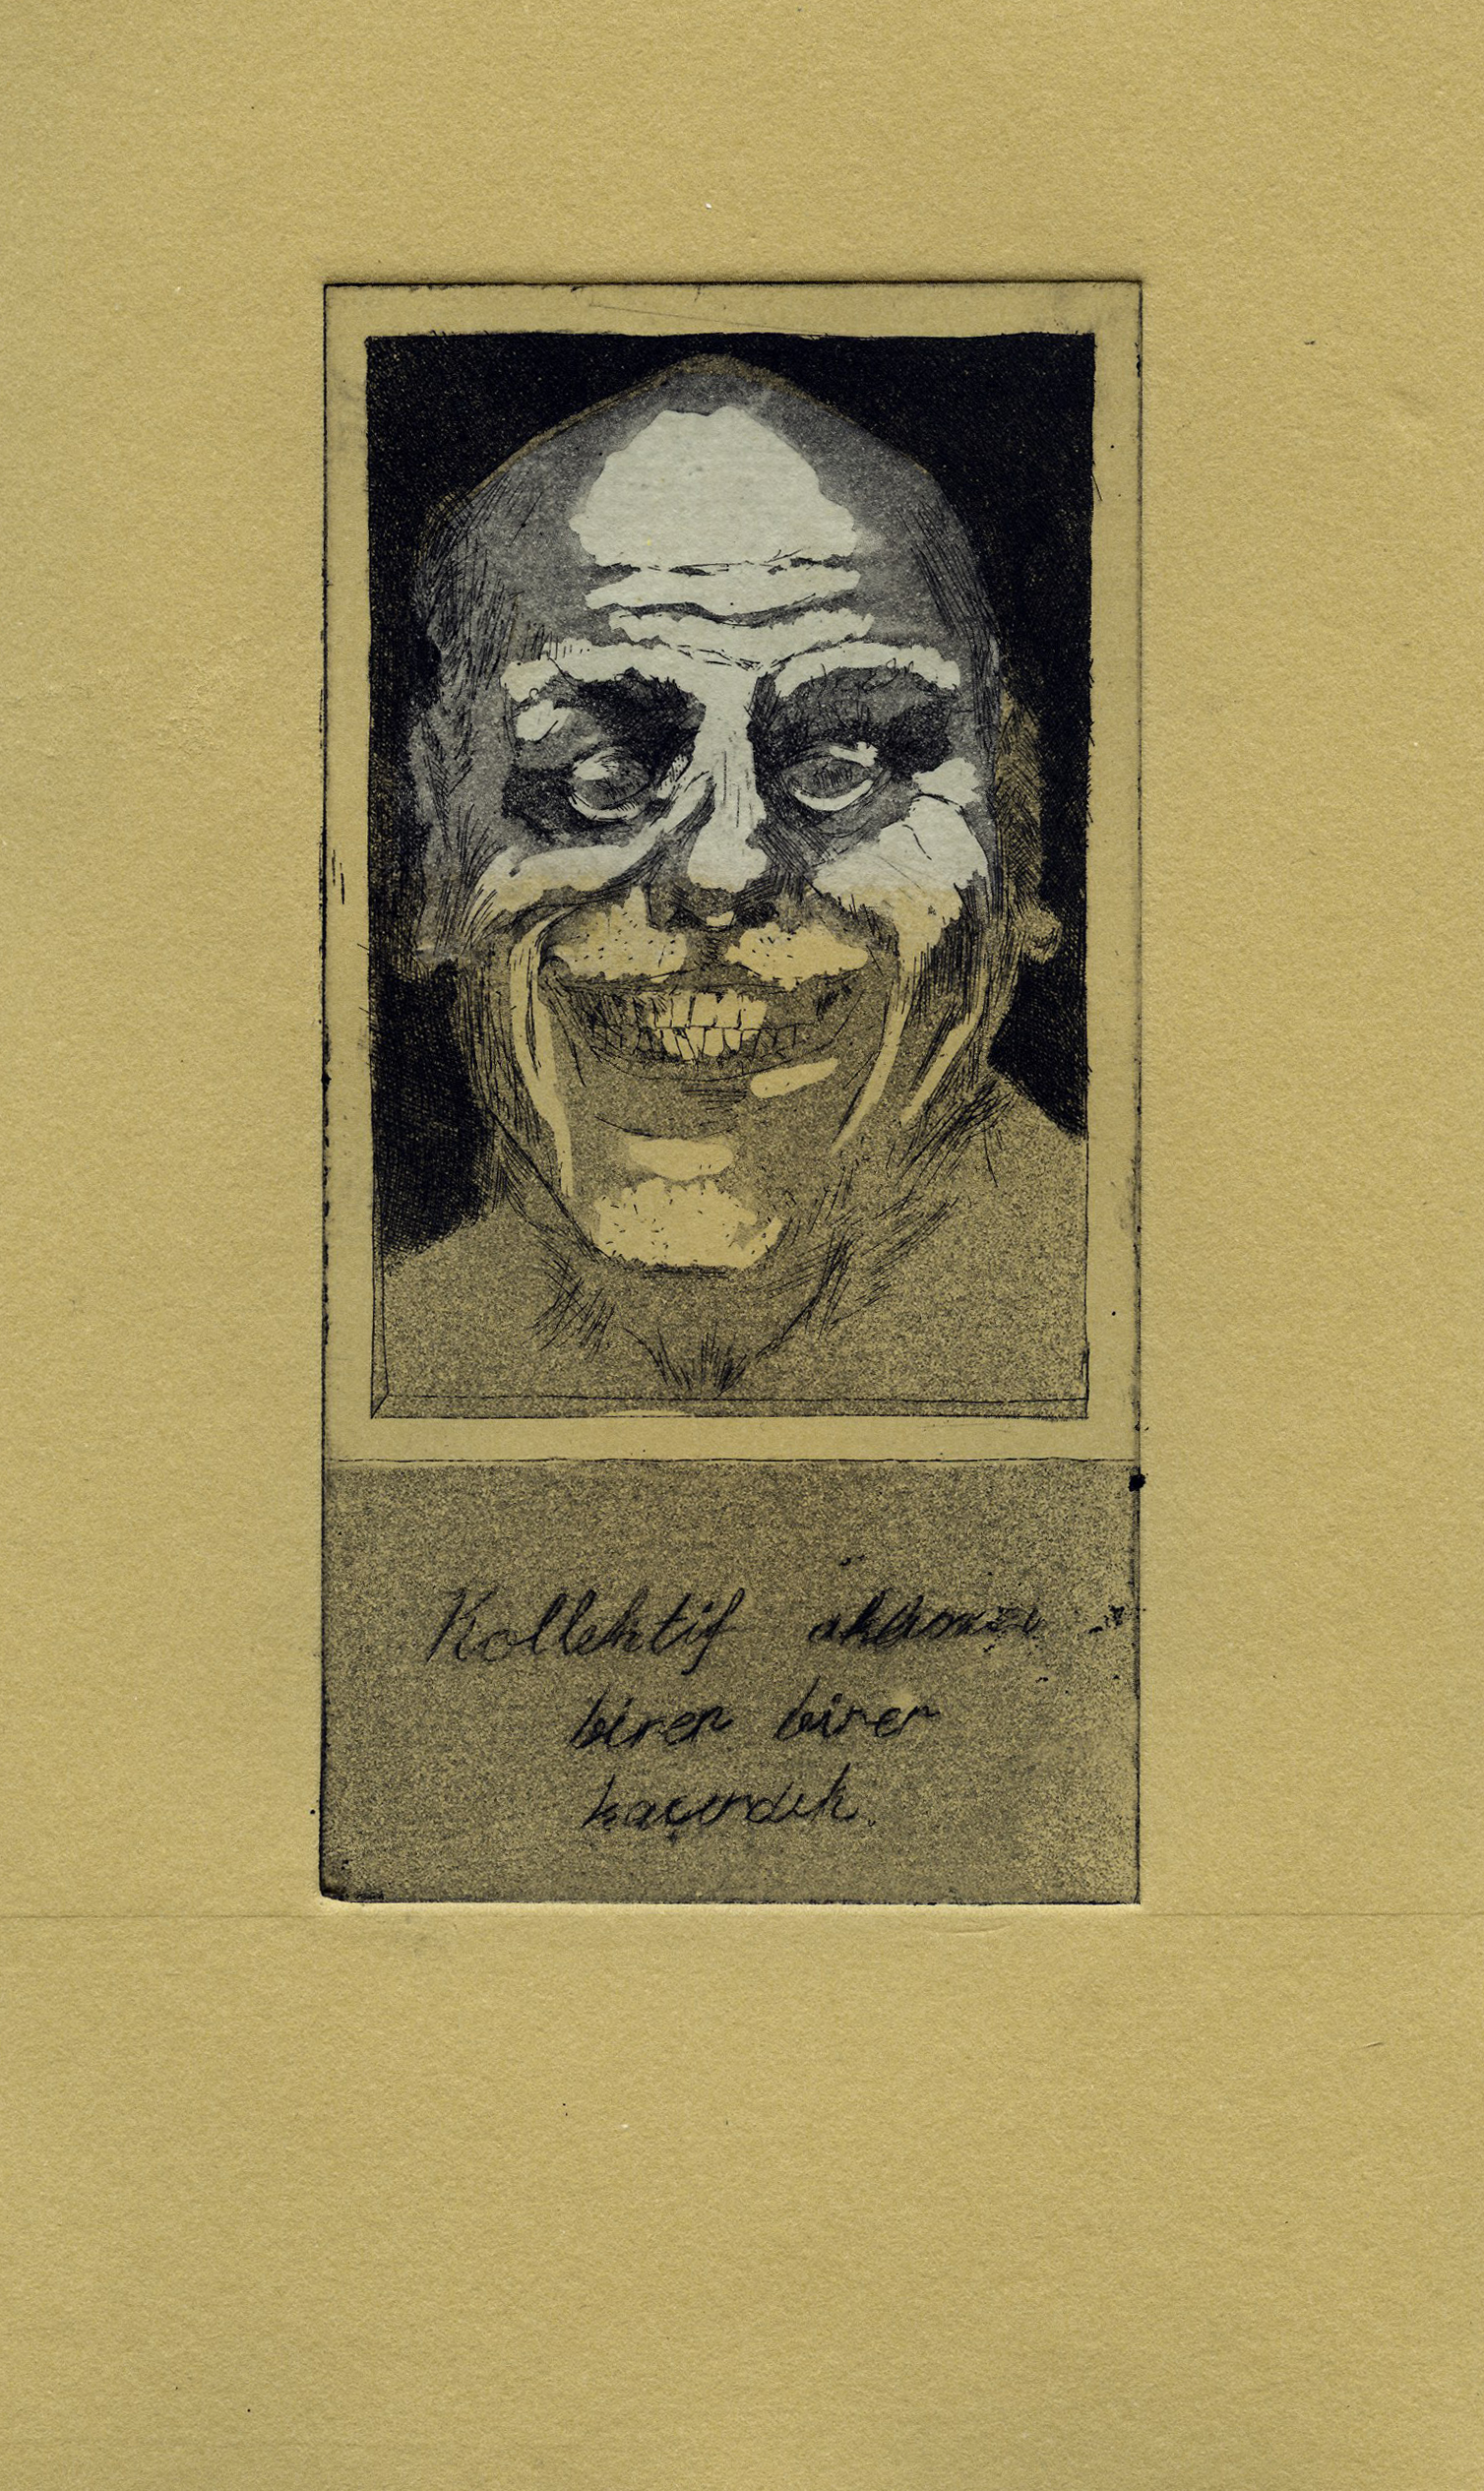 Kollektif aklımızı
birer birer
kaçırdık.